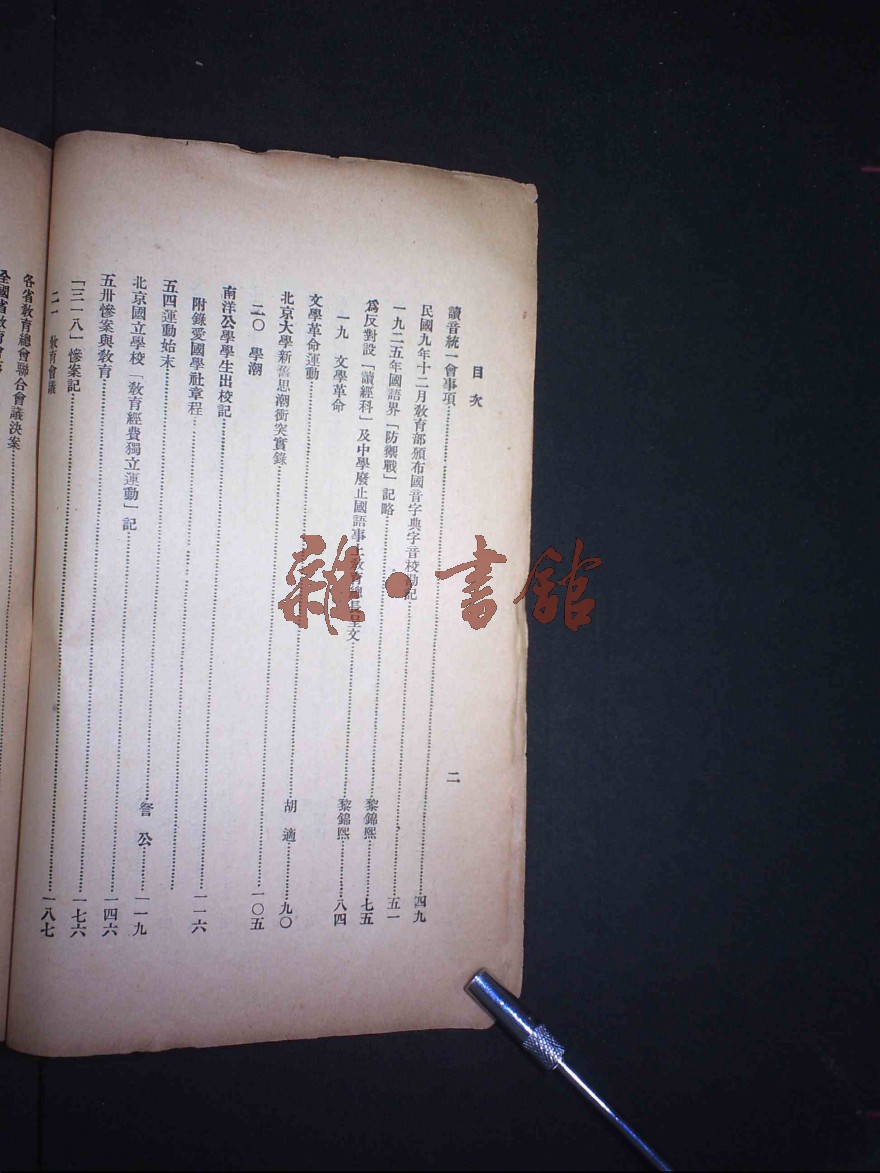 目次
二
讀音統一會事項……四九
民國九年十二月教育部頒布國音字典字音校勘記……五一
一九二五年國語界「防禦戰」記略……黎錦熙……七五
爲反對設「讀經科」及中學廢止國語事上教育總長呈文……黎錦熙……八四
一九 文學革命
文學革命運動……胡適……九〇
北京大學新舊思潮衝突實錄……一〇五
二〇 學潮
南洋公學學生出校記……一一六
附錄愛國學社章程……
五四運動始末……詧公……一一九
北京國立學校「教育經費獨立運動」記……一四六
五卅慘案與教育……一七六
「三一八」慘案記……一八七
二一 教育會議
各省教育總會聯合會議決案……
全國省教育會
雜·書館